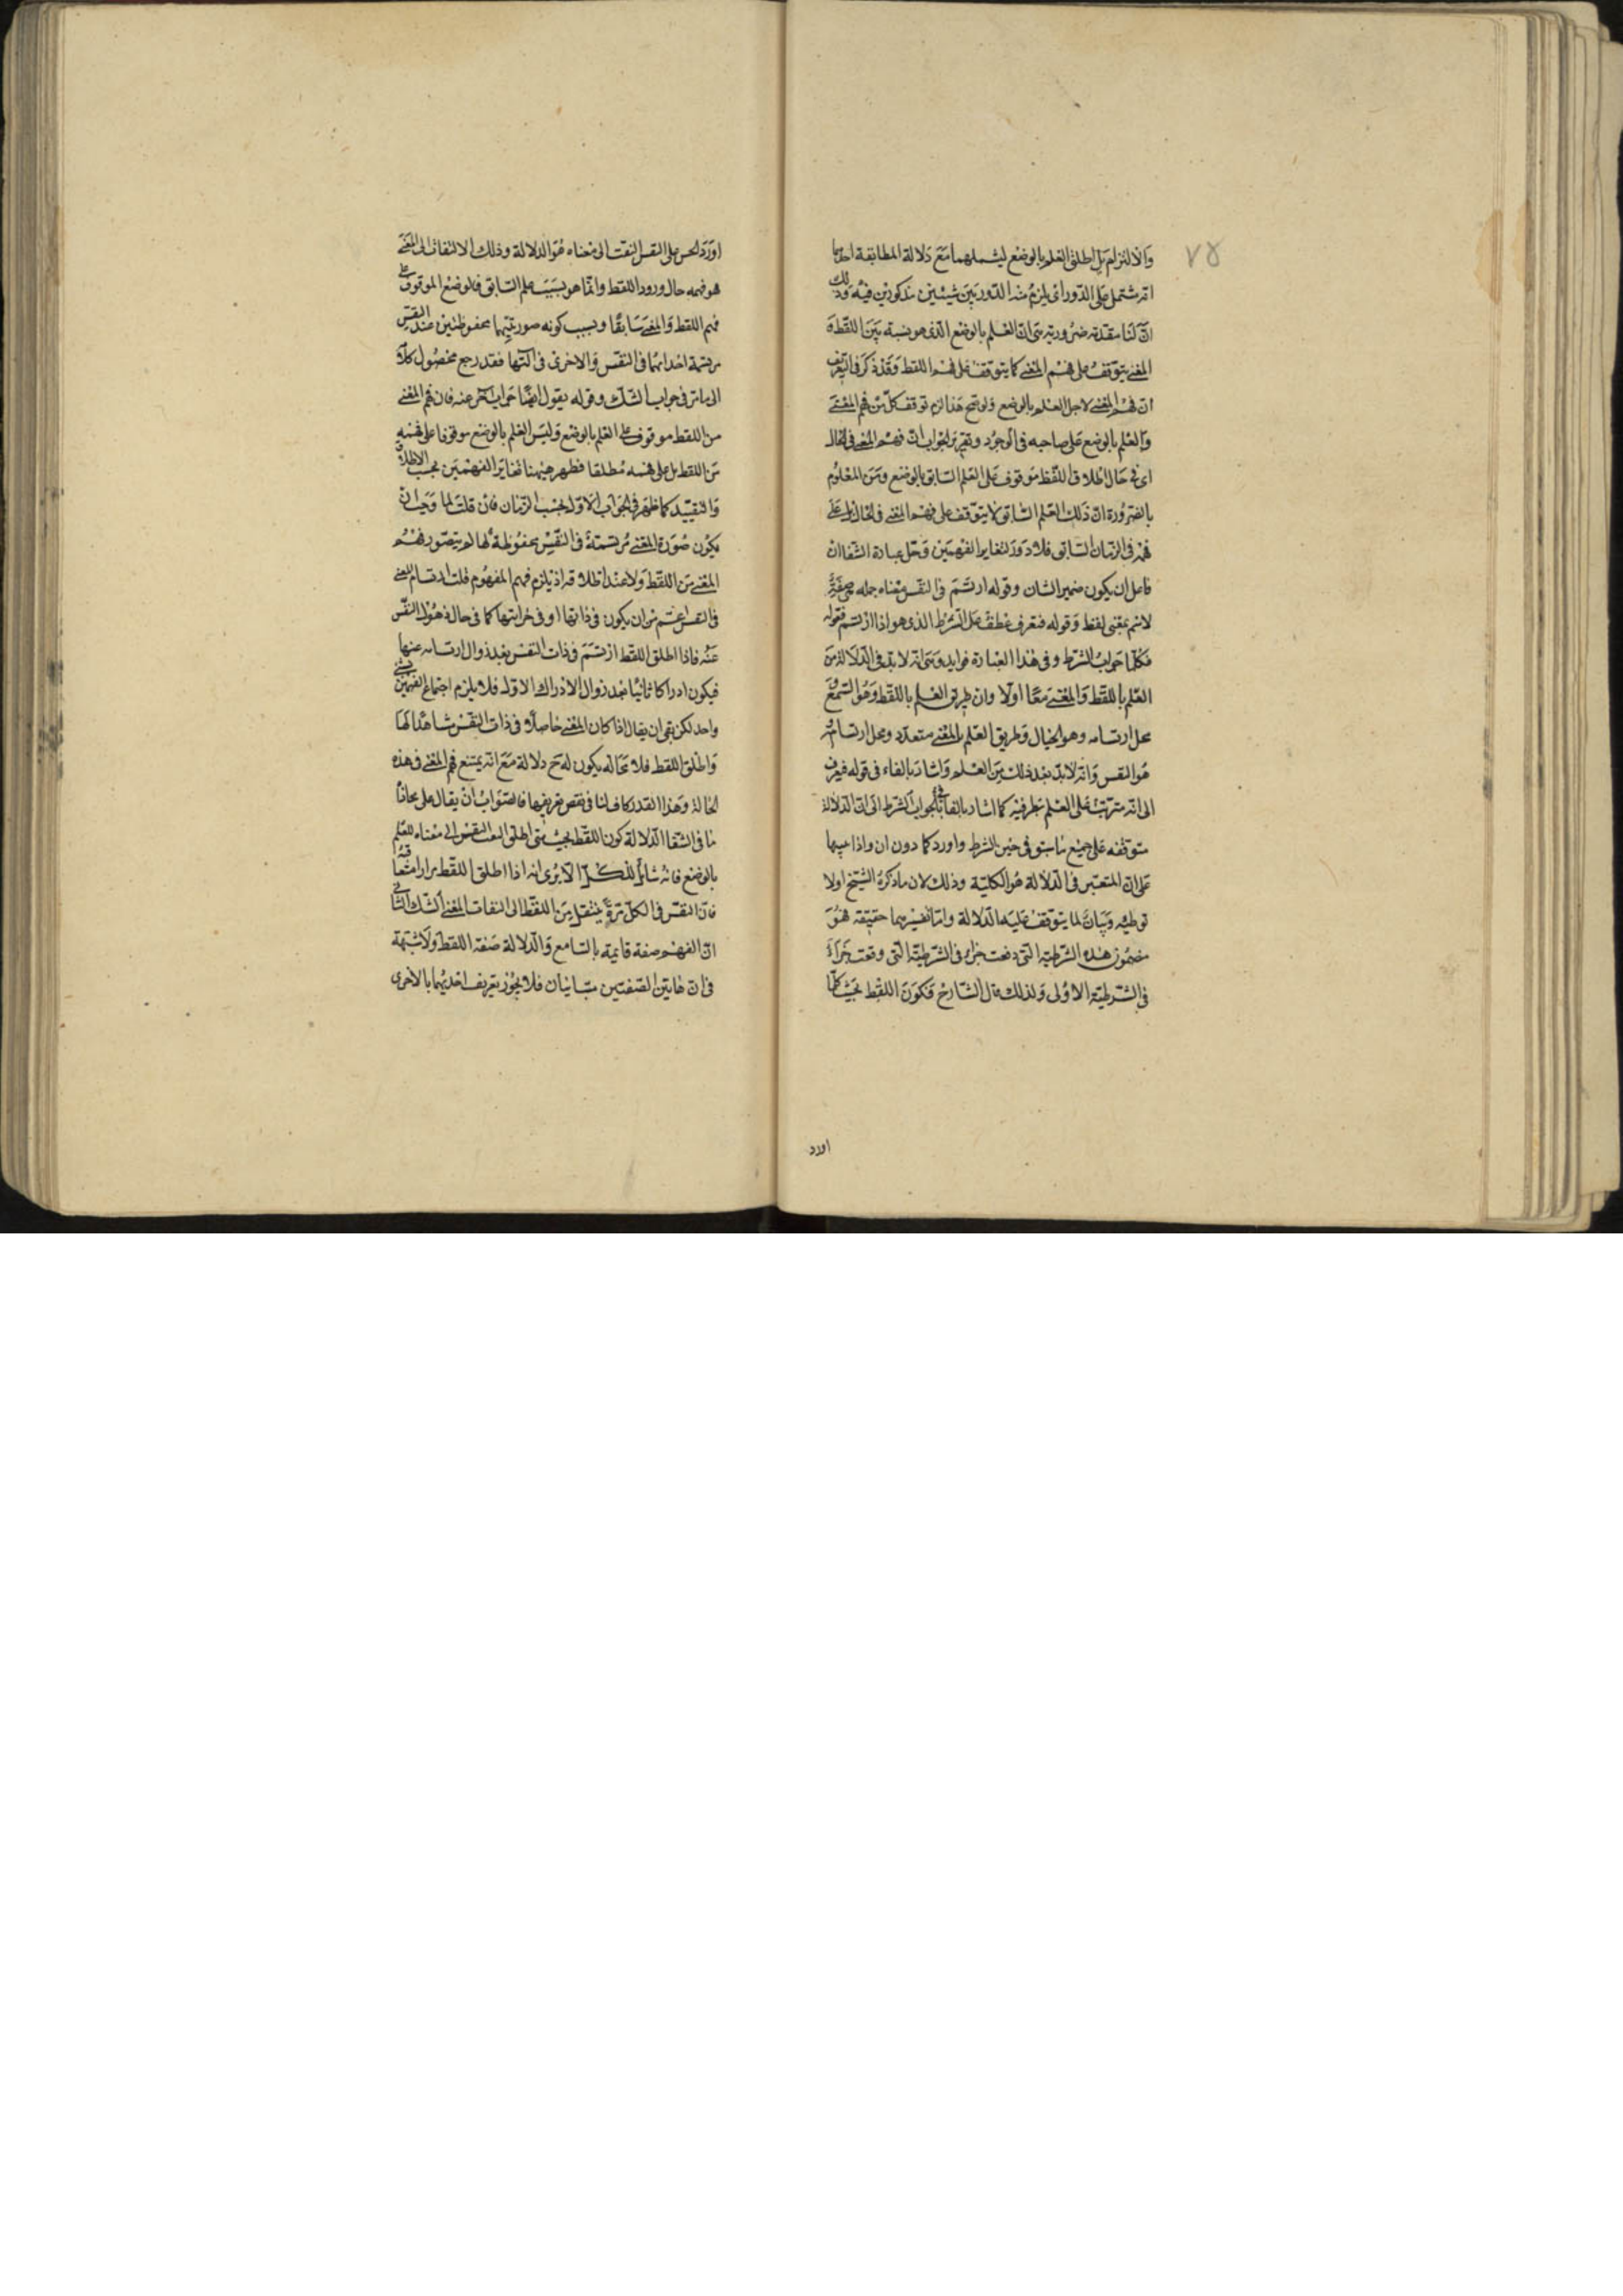 ٧٥
والالتزام بل اطلق العلم بالوضع ليشملهما مع دلالة المطابقة احدها
انه شتمل على الدور اى يلزم منه الدور بين شيئين مذكورين فيه وذلك
ان لنا مقدمة ضرورية هى ان العلم بالوضع الذى هو نسبة بين اللفظ و
المعنى يتوقف على فهم المعنى كما يتوقف على فهم اللفظ وقد ذكر فى التعريف
ان فهم المعنى لاجل العلم بالوضع ولو صح هذا لزم توقف كل من فهم المعنى
والعلم بالوضع على صاحبه فى الوجود وتقرير الجواب ان فهم المعنى فى الحال
اى فى حال اطلاق اللفظ موقوف على العلم السابق بالوضع ومن المعلوم
بالضرورة ان ذلك العلم السابق لا يتوقف على فهم المعنى فى الحال بل على
فهمه فى الزمان السابق فلا دور لتغاير الفهمين وحل عبارة الشفا ان
فاعل ان يكون ضمير الشان وقوله ارتسم فى النفس معناه جملة هى صفة
لاسم بمعنى لفظ وقوله فتعرف عطف على الشرط الذى هو اذا ارتسم فقوله
فكلما جواب الشرط وفى هذا العبارة فوايد وهى انه لا بد فى الدلالة من
العلم باللفظ والمعنى معا اولا وان طريق العلم باللفظ هو السمع و
محل ارتسامه وهو الخيال وطريق العلم بالمعنى متعدد ومحل ارتسامه
هو النفس وانه لا بد بعد ذلك من العلم واشار بالفاء فى قوله فيعرف
الى انه مترتب على العلم بطرفيه كما اشار بالفاء فى الجواب الشرط الى ان الدلالة
متوقفة على جميع ما سبق فى حيز الشرط واورد كلما دون ان واذا تنبيها
على ان المعتبر فى الدلالة هو الكلية وذلك لان ما ذكره الشيخ اولا
توطية وبيان لما يتوقف عليه الدلالة واما تفسيرهما حقيقة فهو
مضمون هذه الشرطية التى وقعت جزاء فى الشرطية التى وقعت جزاء
فى الشرطية الاولى ولذلك قال الشارح فكون اللفظ بحيث كلما
اورد
اورد الحس على النفس التفت الى معناه هو الدلالة وذلك الالتفات الى المعنى
هو فهمه حال ورود اللفظ وانما هو بسبب علم السابق فالوضع الموقوف على
فهم اللفظ والمعنى سابقا وبسبب كونه صورتيهما محفوظتين عند النفس
مرتسمة احداهما فى النفس والاخرى فى آلتها فقد رجع محصول كلامه
الى ما مر فى جواب الشك وقوله يقول ايضا جواب اخر عنه فان فهم المعنى
من اللفظ موقوف على العلم بالوضع وليس العلم بالوضع موقوفا على فهمه
من اللفظ بل على فهمه مطلقا فظهر ههنا تغاير الفهمين بحسب الاطلاق
والتقييد كما ظهر فى الجواب الاول بحسب الزمان فان قلت لما وجب ان
يكون صورة المعنى مرتسمة فى النفس محفوظة لها لم يتصور فهم
المعنى من اللفظ ولا عند اطلاقه اذ يلزم فهم المفهوم قلت ارتسام المعنى
فى النفس اعم من ان يكون فى ذاتها او فى خزانتها كما فى حال ذهول النفس
عنه فاذا اطلق اللفظ ارتسم فى ذات النفس بعد زوال ارتسامه عنها
فيكون ادراكا ثانيا بعد زوال الادراك الاول فلا يلزم اجتماع الفهمين لشئ
واحد لكن بقى ان يقال اذا كان المعنى حاصلا فى ذات النفس مشاهدا لها
واطلق اللفظ فلا محالة يكون له ح دلالة مع انه يمتنع فهم المعنى فى هذه
الحالة وهذا القدر كاف لنا فى نقص تعريفها فالصواب ان يقال على محاذاة
ما فى الشفا الدلالة كون اللفظ بحيث متى اطلق التفت النفس الى معناه للعلم
بالوضع فانه شامل للكل الا يرى انه اذا اطلق اللفظ مرارا متعاقبة
فان النفس فى الكل مرة ينتقل من اللفظ الى التفات المعنى الشك الثانى
ان الفهم صفة قايمة بالسامع والدلالة صفة اللفظ ولا شبهة
فى ان هاتين الصفتين متباينان فلا يجوز تعريف احديهما بالاخرى